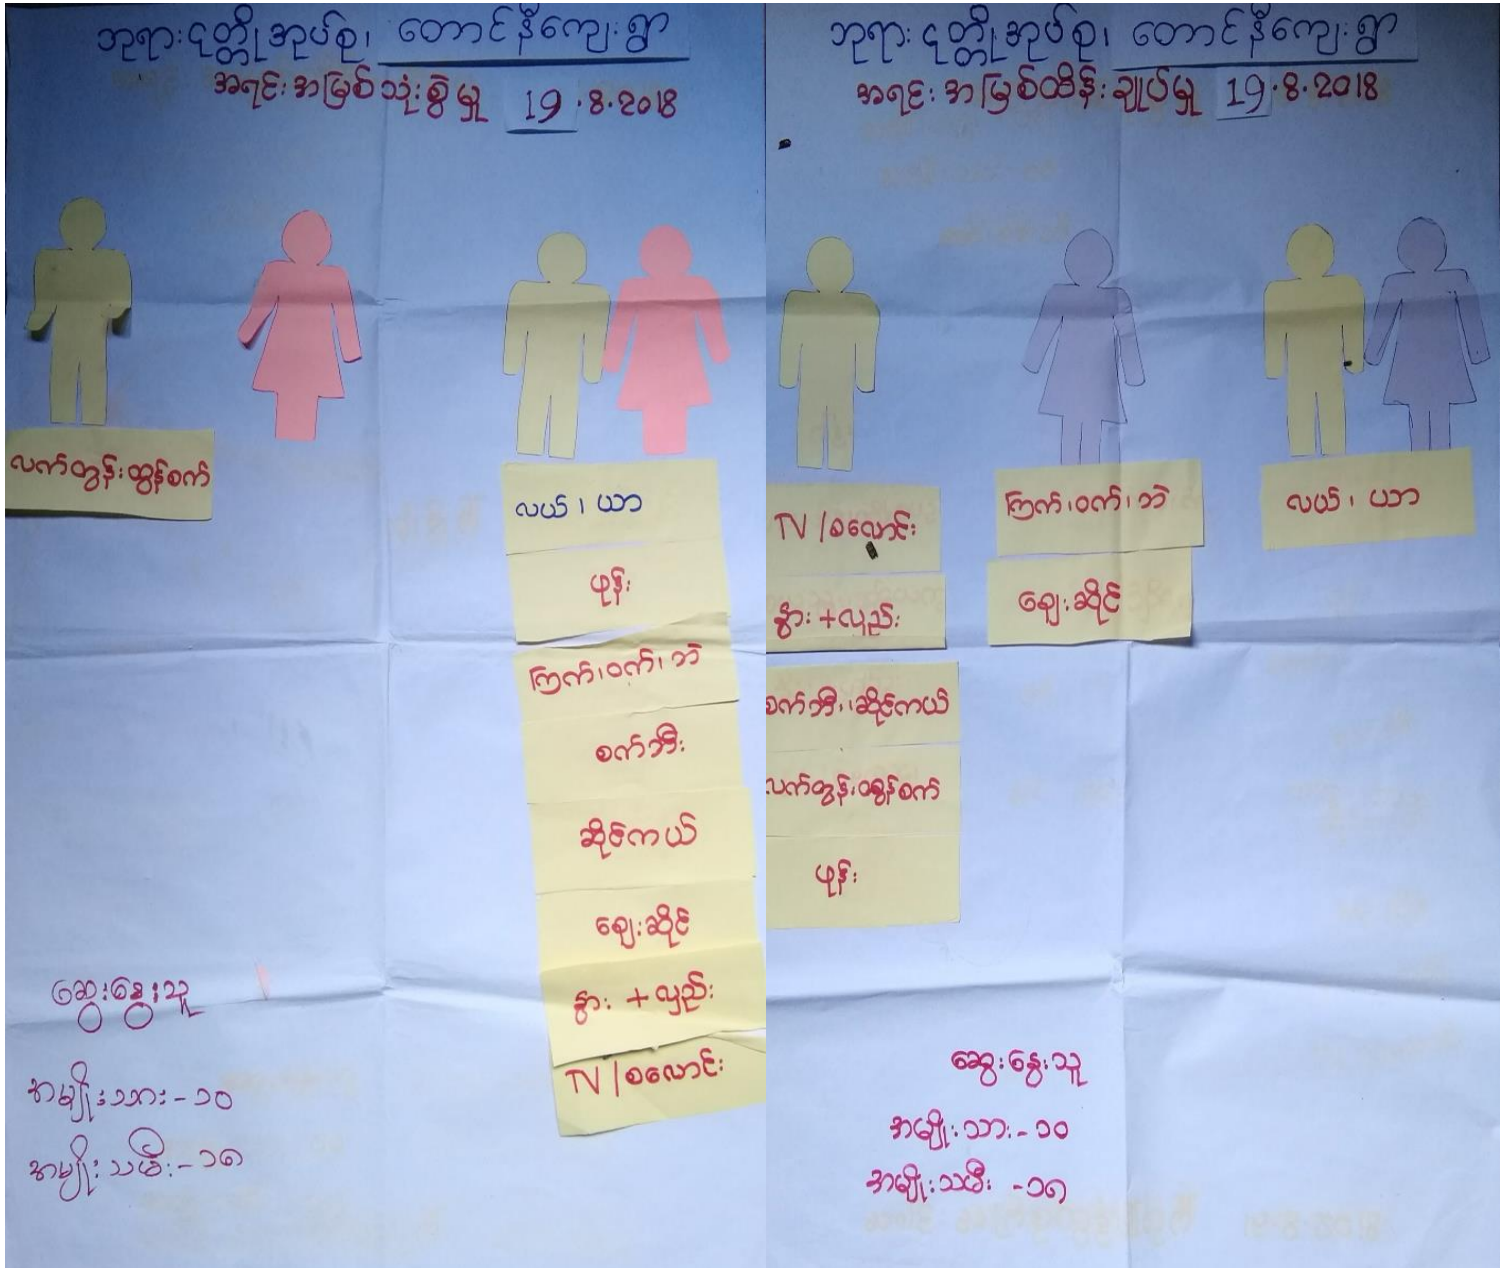 ဘုရားငုတ္တိုအုပ်စု၊ တောင်နီကျေးရွာ
အရင်းအမြစ်သုံးစွဲမှု 19.8.2018
လက်တွန်းထွန်စက်
လယ်၊ ယာ
ဖုန်း
ကြက်၊ဝက်၊ဘဲ
စက်ဘီး
ဆိုင်ကယ်
ဈေးဆိုင်
နွား +လှည်း
TV/စလောင်း
ဆွေးနွေးသူ
အမျိုးသား-၁၀
အမျိုးသမီး-၁၈
ဘုရားငုတ္တိုအုပ်စု၊ တောင်နီကျေးရွာ
အရင်းအမြစ်ထိန်းချုပ်မှု 19.8.2018
TV/စလောင်း
နွား +လှည်း
စက်ဘီး၊ဆိုင်ကယ်
လက်တွန်းထွန်စက်
ဖုန်း
ကြက်၊ဝက်၊ဘဲ
ဈေးဆိုင်
လယ်၊ ယာ
ဆွေးနွေးသူ
အမျိုးသား-၁၀
အမျိုးသမီး -၁၈